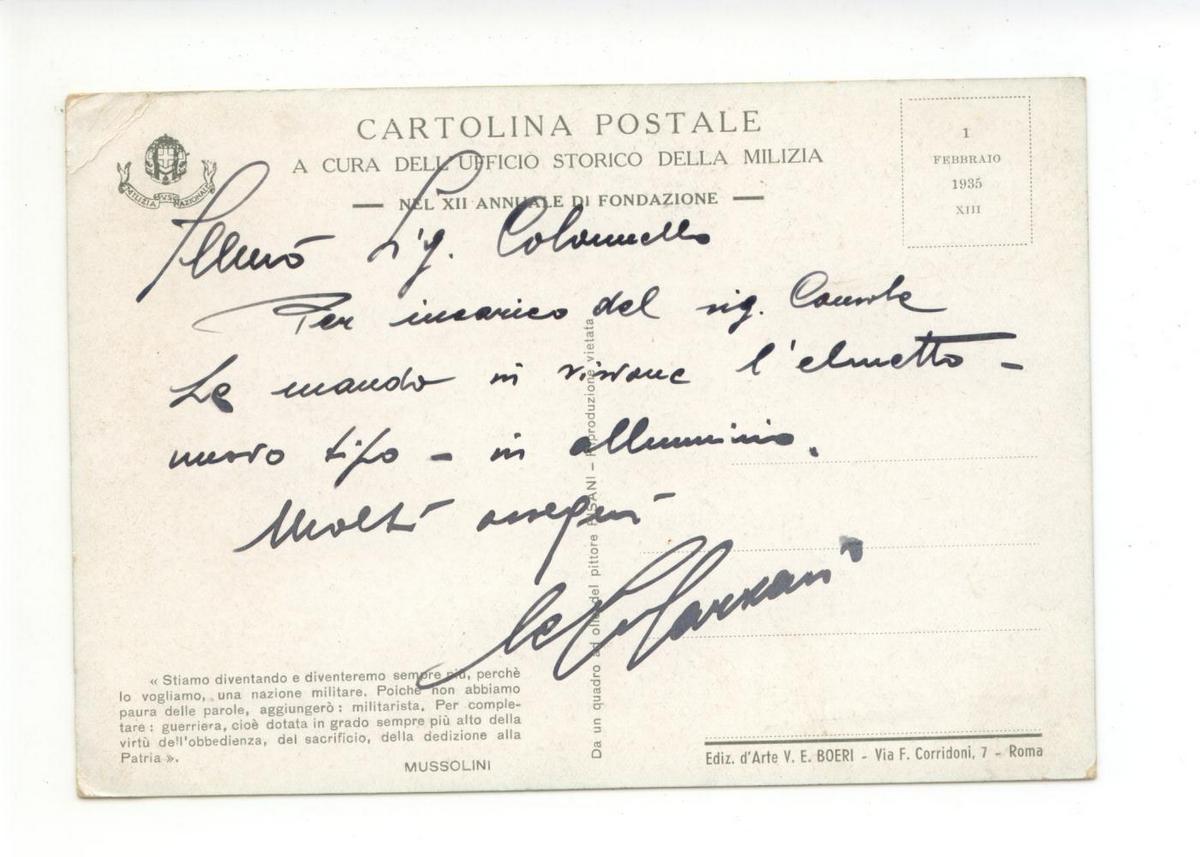 CARTOLINA POSTALE
A CURA DELL'UFFICIO STORICO DELLA MILIZIA
NEL XII ANNUALE DI FONDAZIONE
MILIZIA V.S. NAZIONALE
1
FEBBRAIO
1935
XIII
Illmo Sig. Colonnello
Per incarico del sig. Console
Le mando in visione l'elmetto -
nuovo tipo - in alluminio.
Molti ossequi
Marzani
Da un quadro ad olio del pittore PISANI - Riproduzione vietata
« Stiamo diventando e diventeremo sempre più, perchè
lo vogliamo, una nazione militare. Poichè non abbiamo
paura delle parole, aggiungerò : militarista. Per comple-
tare : guerriera, cioè dotata in grado sempre più alto della
virtù dell'obbedienza, del sacrificio, della dedizione alla
Patria ».
MUSSOLINI
Ediz. d'Arte V. E. BOERI - Via F. Corridoni, 7 - Roma